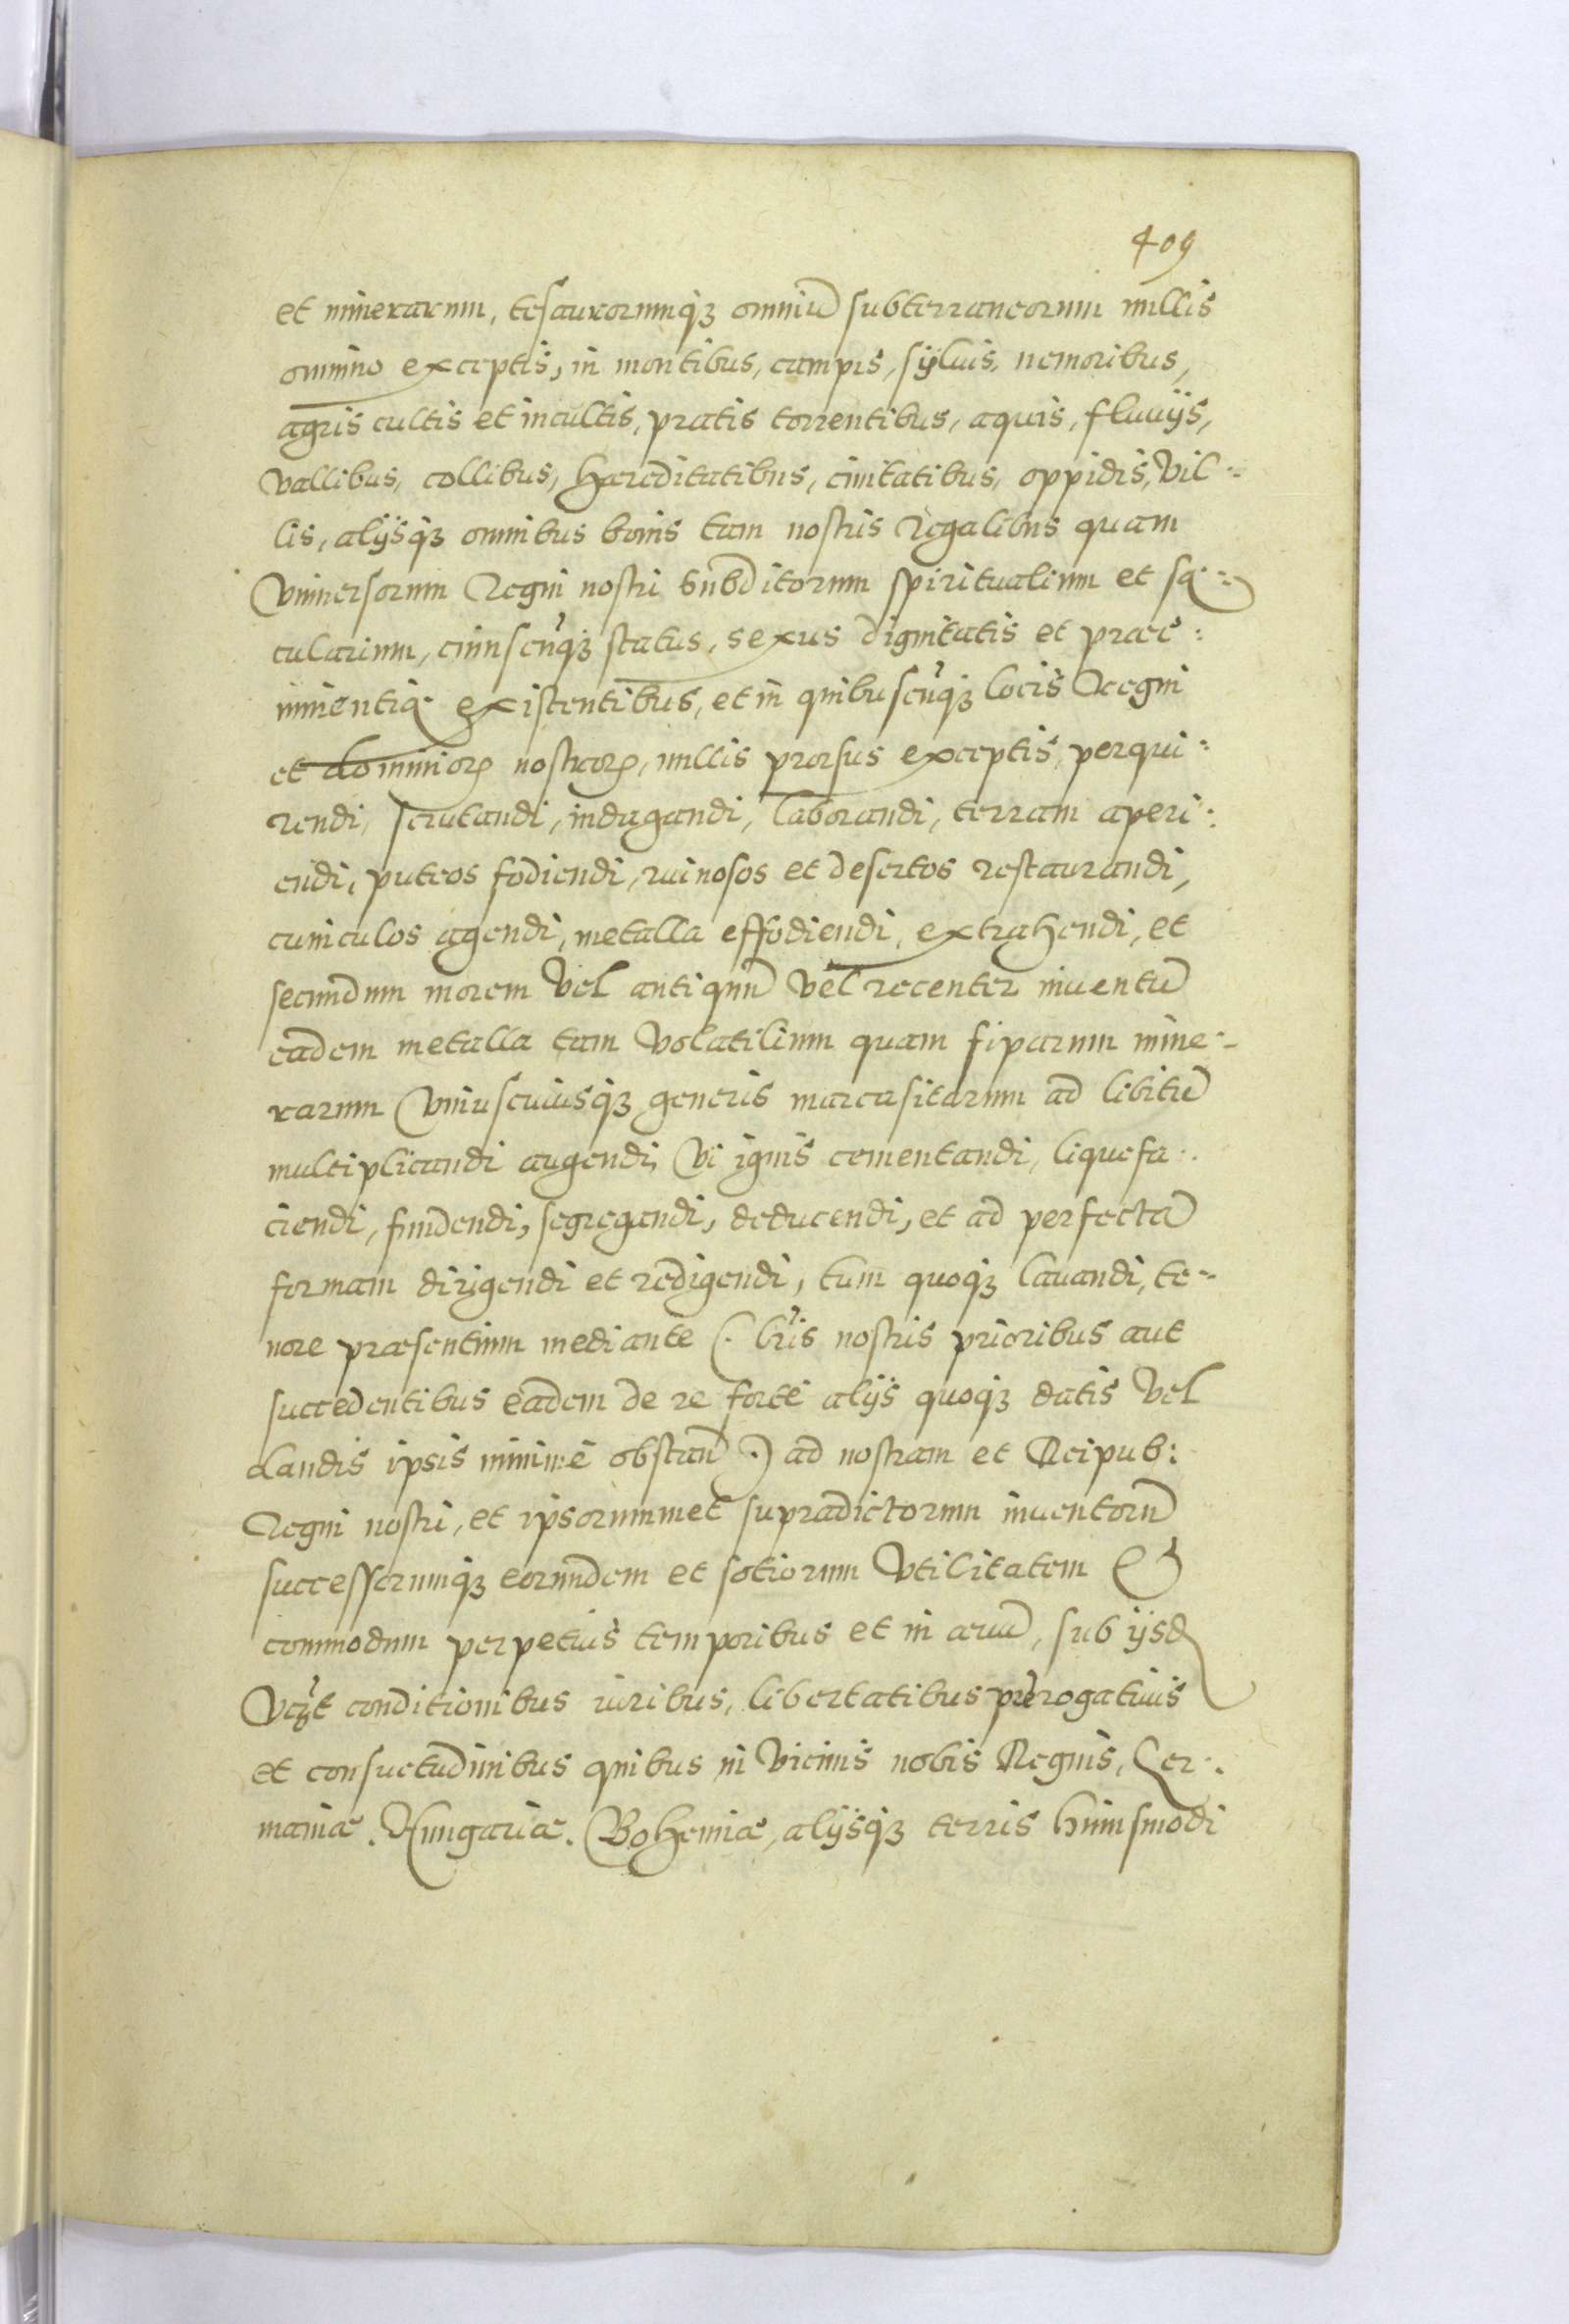 409
et minerarum, tesaurorumq́ꝫ omniū subterraneorum nullis
omnino exceptis, in montibus, campis, sÿluis, nemoribus,
agris cultis et incultis, pratis torrentibus, aquis, fluuijs,
vallibus, collibus, hæreditatibus, ciuitatibus, oppidis, vil-
lis, alijsq́ꝫ omnibus bonis tam nostris Regalibus quam
Vniuersorum Regni nostri Subditorum spiritualium et sę-
cularium, cuiuscũqꝫ status, sexus dignitatis et praeë:
minentię existentibus, et in quibuscũqꝫ locis Regni
et dominiorꝝ nostrorꝝ, nullis prorsus exceptis, perqui:
rendi, scrutandi, indagandi, laborandi, terram aperi:
endi, puteos fodiendi, ruinosos et desertos restaurandi,
cuniculos agendi, metalla effodiendi, extrahendi, et
secundum morem vel antiquũ vel recenter inuentū
eadem metalla tam volatilium quam fixarum mine-
rarum Vniuscuiusq́ꝫ generis marcasitarum ad libitū
multiplicandi augendi, vi ignis cementandi, liquefa:
ciendi, fundendi, segregandi, deducendi, et ad perfectā
formam dirigendi et redigendi, tum quoqꝫ lauandi, te-
nore præsentium mediante (: lr̃is nostris prioribus aut
succedentibus eadem de re fortè alijs quoqꝫ datis vel
dandis ipsis minimè obstañ :) ad nostram et Reipub:
Regni nostri, et ipsorummet supradictorum inuentorū
successorumq́ꝫ eorundem et sotiorum vtilitatem &
commodum perpetuis temporibus et in æuū, sub ijsd
vcꝫt conditionibus iuribus, libertatibus prærogatiuis
et consuetudinibus quibus in vicinis nobis Regnis, Ger:
maniæ. Hungariæ. Bohemiæ, alijsq́ꝫ terris huiusmodi